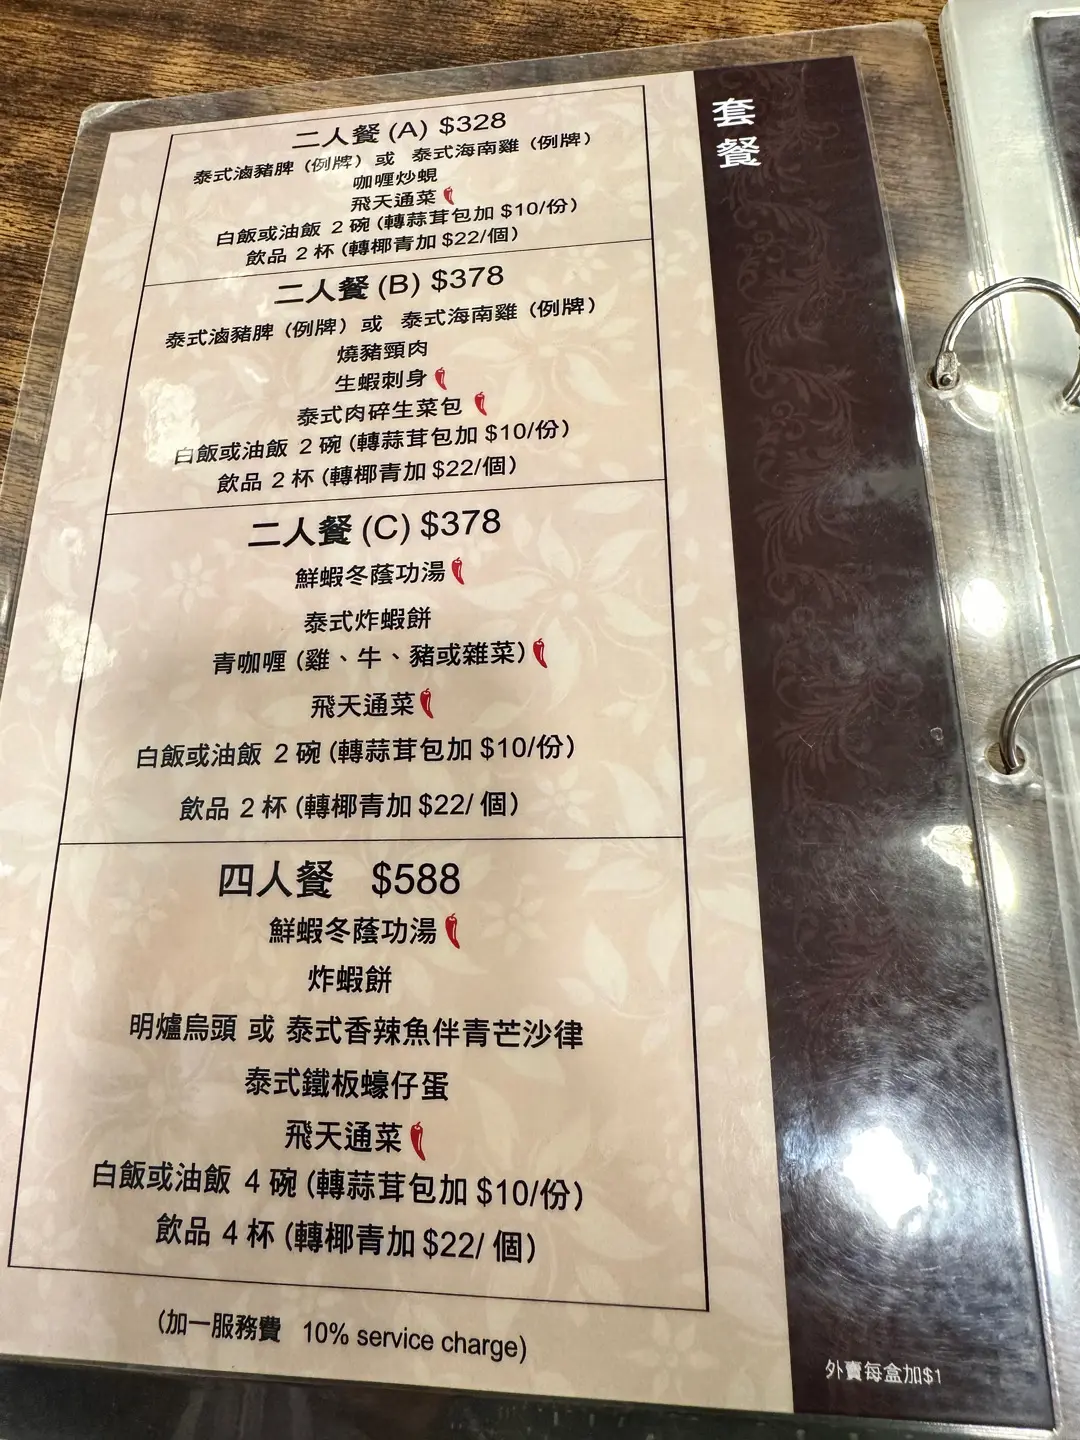 套餐
二人餐 (A) $328
泰式滷豬脾 (例牌) 或 泰式海南雞 (例牌)
咖喱炒蜆
飛天通菜
白飯或油飯 2 碗 (轉蒜茸包加 $10/份)
飲品 2 杯 (轉椰青加 $22/個)
二人餐 (B) $378
泰式滷豬脾 (例牌) 或 泰式海南雞 (例牌)
燒豬頸肉
生蝦刺身
泰式肉碎生菜包
白飯或油飯 2 碗 (轉蒜茸包加 $10/份)
飲品 2 杯 (轉椰青加 $22/個)
二人餐 (C) $378
鮮蝦冬蔭功湯
泰式炸蝦餅
青咖喱 (雞、牛、豬或雜菜)
飛天通菜
白飯或油飯 2 碗 (轉蒜茸包加 $10/份)
飲品 2 杯 (轉椰青加 $22/ 個)
四人餐 $588
鮮蝦冬蔭功湯
炸蝦餅
明爐烏頭 或 泰式香辣魚伴青芒沙律
泰式鐵板蠔仔蛋
飛天通菜
白飯或油飯 4 碗 (轉蒜茸包加 $10/份)
飲品 4 杯 (轉椰青加 $22/ 個)
(加一服務費 10% service charge)
外賣每盒加$1